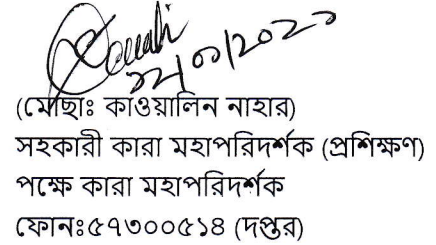 (মোছাঃ কাওয়ালিন নাহার)
সহকারী কারা মহাপরিদর্শক (প্রশিক্ষণ)
পক্ষে কারা মহাপরিদর্শক
ফোনঃ৫৭৩০০৫১৪ (দপ্তর)